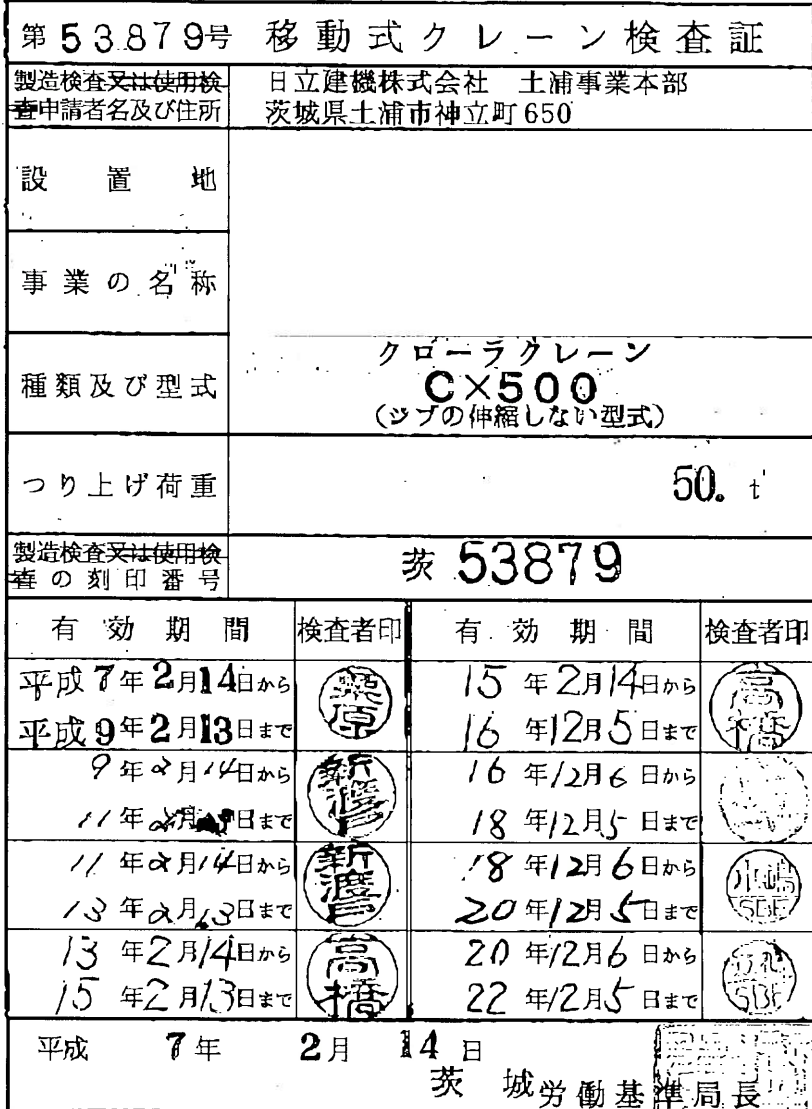 第53879号 移動式クレーン検査証
製造検査又は使用検
査申請者名及び住所
日立建機株式会社 土浦事業本部
茨城県土浦市神立町650
設置地
事業の名称
種類及び型式
クローラクレーン
CX500
(ジブの伸縮しない型式)
つり上げ荷重
50. t
製造検査又は使用検
査の刻印番号
茨 53879
有効期間 検査者印 有効期間 検査者印
平成7年2月14日から
平成9年2月13日まで
栗原
9年2月14日から
11年2月 日まで
新渡戸
11年2月14日から
13年2月13日まで
新渡戸
13年2月14日から
15年2月13日まで
高橋
15年2月14日から
16年12月5日まで
高橋
16年12月6日から
18年12月5日まで
18年12月6日から
20年12月5日まで
20年12月6日から
22年12月5日まで
平成 7年 2月 14日
茨城労働基準局長